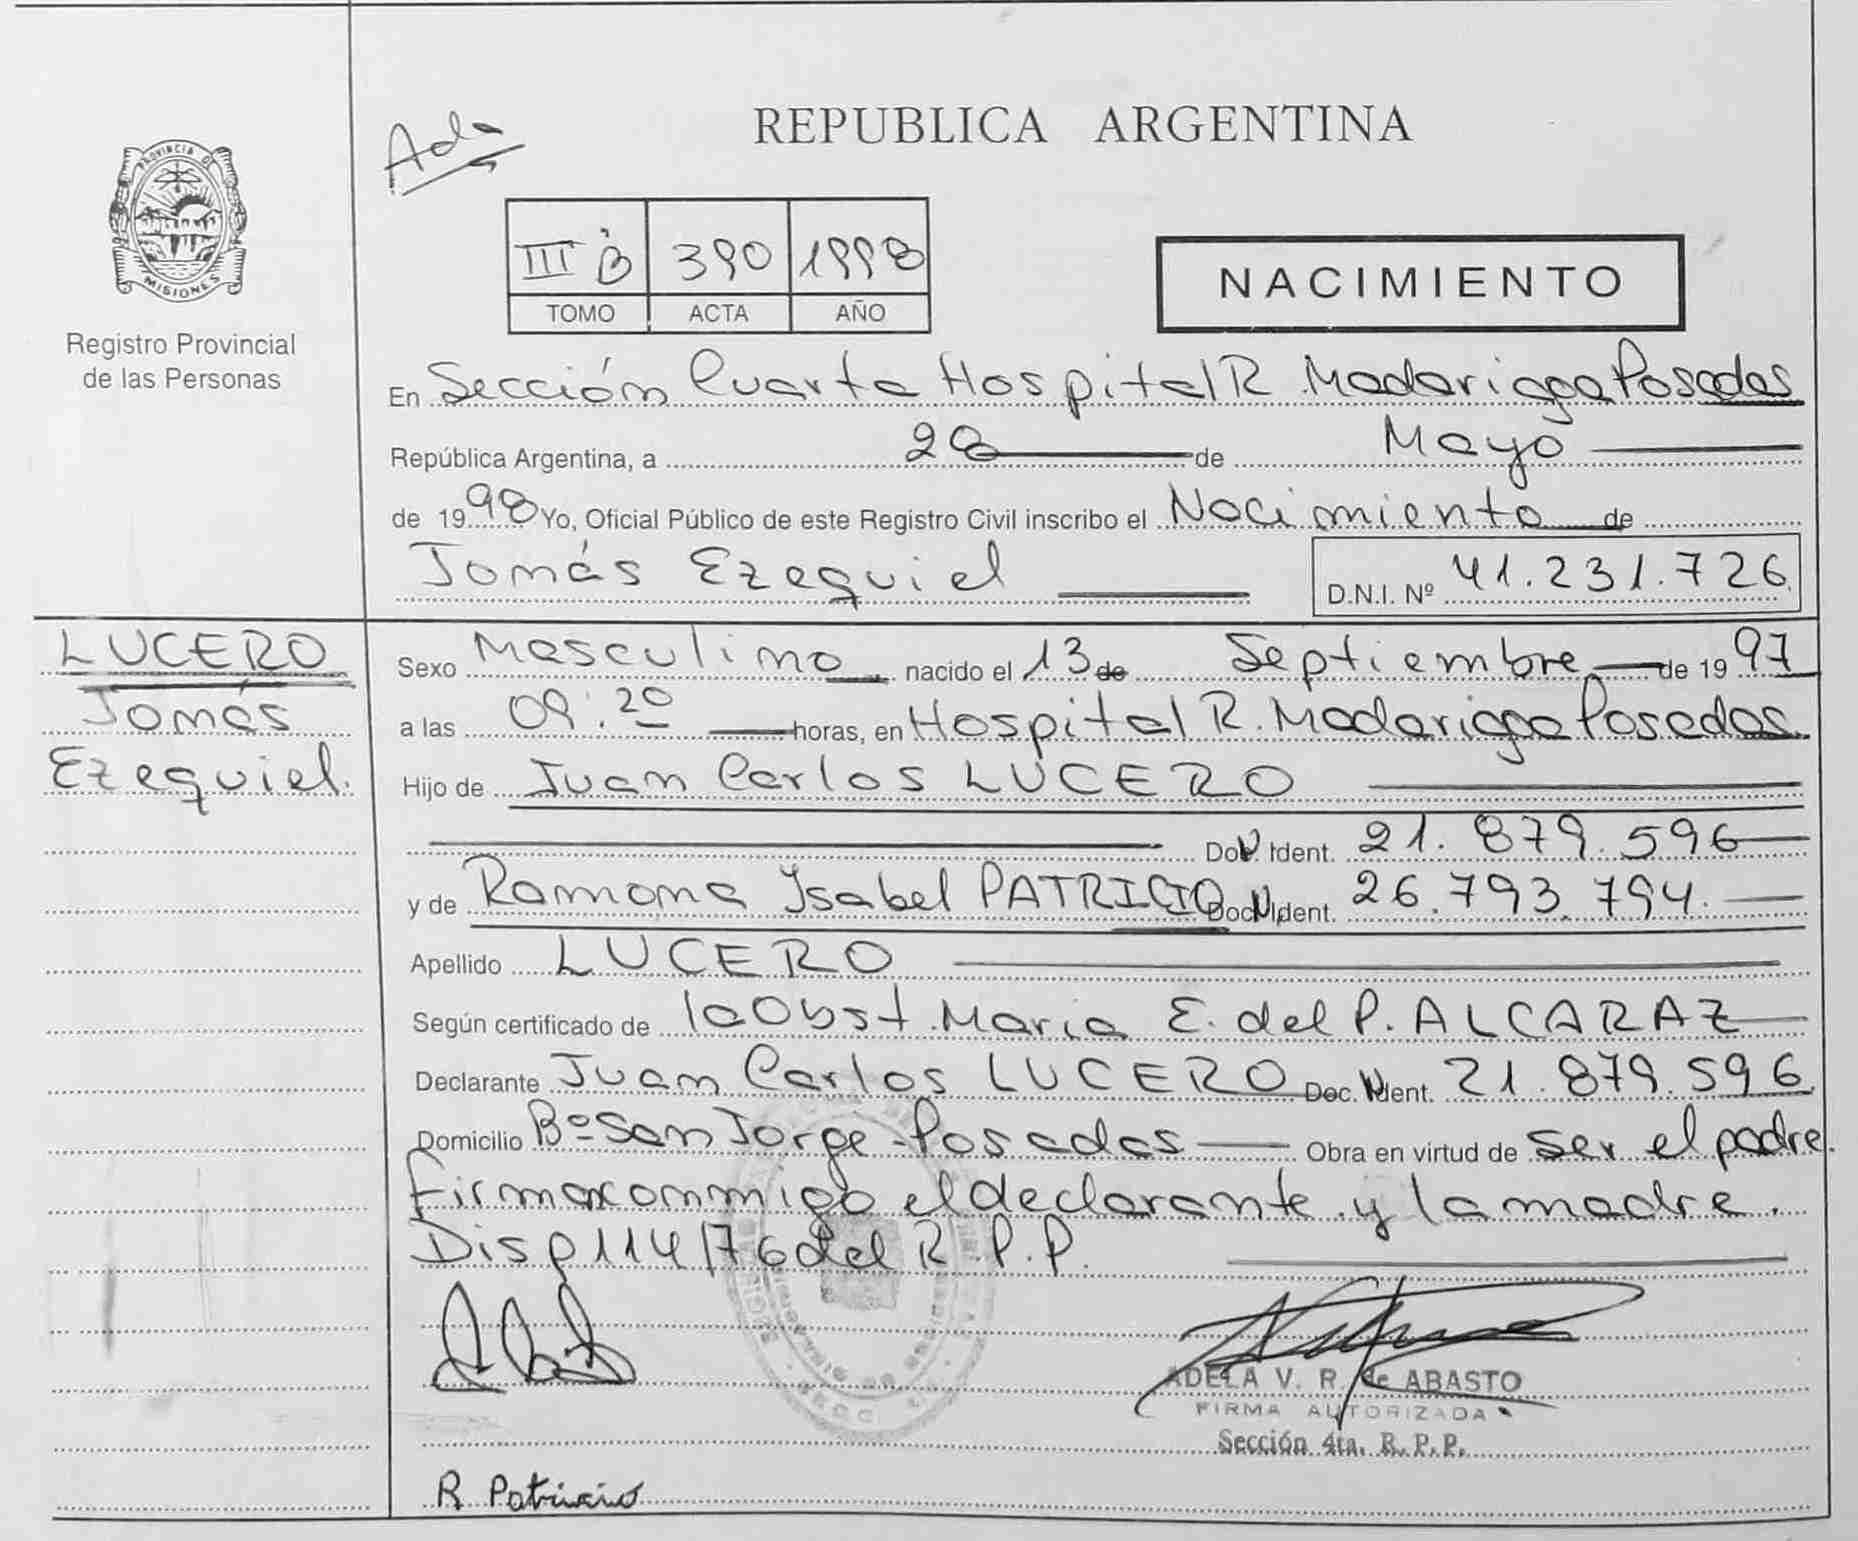 PROVINCIA DE
MISIONES
Registro Provincial
de las Personas
Ada
REPUBLICA ARGENTINA
III B 390 1998
TOMO ACTA AÑO
NACIMIENTO
En Sección Cuarta Hospital R. Madariaga Posadas
República Argentina, a 28 de Mayo
de 1998 Yo, Oficial Público de este Registro Civil inscribo el Nacimiento de
Tomás Ezequiel D.N.I. Nº 41.231.726
LUCERO
Tomás
Ezequiel.
Sexo Masculino nacido el 13 de Septiembre de 1997
a las 09:20 horas, en Hospital R. Madariaga Posadas
Hijo de Juan Carlos LUCERO
Doc. Ident. 21.879.596
y de Ramona Ysabel PATRICIO Doc. Ident. 26.793.794.
Apellido LUCERO
Según certificado de la Obst. Maria E. del P. ALCARAZ
Declarante Juan Carlos LUCERO Doc. Ident. 21.879.596
Domicilio Bº San Jorge - Posadas Obra en virtud de ser el padre.
Firman conmigo el declarante y la madre.
Disp 114/76 del R.P.P.
ADELA V. R. de ABASTO
FIRMA AUTORIZADA
Sección 4ta. R. P. P.
R Patricio